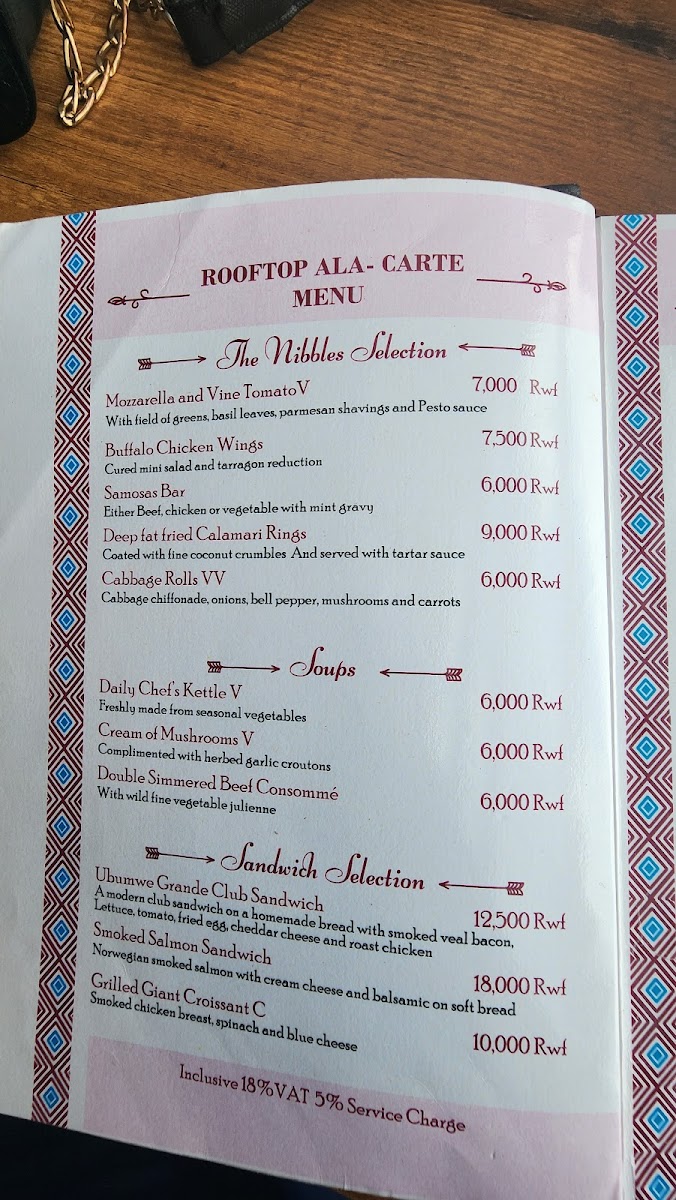 ROOFTOP ALA- CARTE
MENU
The Nibbles Selection
Mozzarella and Vine Tomato V 7,000 Rwf
With field of greens, basil leaves, parmesan shavings and Pesto sauce
Buffalo Chicken Wings 7,500 Rwf
Cured mini salad and tarragon reduction
Samosas Bar 6,000 Rwf
Either Beef, chicken or vegetable with mint gravy
Deep fat fried Calamari Rings 9,000 Rwf
Coated with fine coconut crumbles And served with tartar sauce
Cabbage Rolls VV 6,000 Rwf
Cabbage chiffonade, onions, bell pepper, mushrooms and carrots
Soups
Daily Chef's Kettle V 6,000 Rwf
Freshly made from seasonal vegetables
Cream of Mushrooms V 6,000 Rwf
Complimented with herbed garlic croutons
Double Simmered Beef Consommé 6,000 Rwf
With wild fine vegetable julienne
Sandwich Selection
Ubumwe Grande Club Sandwich 12,500 Rwf
A modern club sandwich on a homemade bread with smoked veal bacon,
Lettuce, tomato, fried egg, cheddar cheese and roast chicken
Smoked Salmon Sandwich 18,000 Rwf
Norwegian smoked salmon with cream cheese and balsamic on soft bread
Grilled Giant Croissant C 10,000 Rwf
Smoked chicken breast, spinach and blue cheese
Inclusive 18% VAT 5% Service Charge